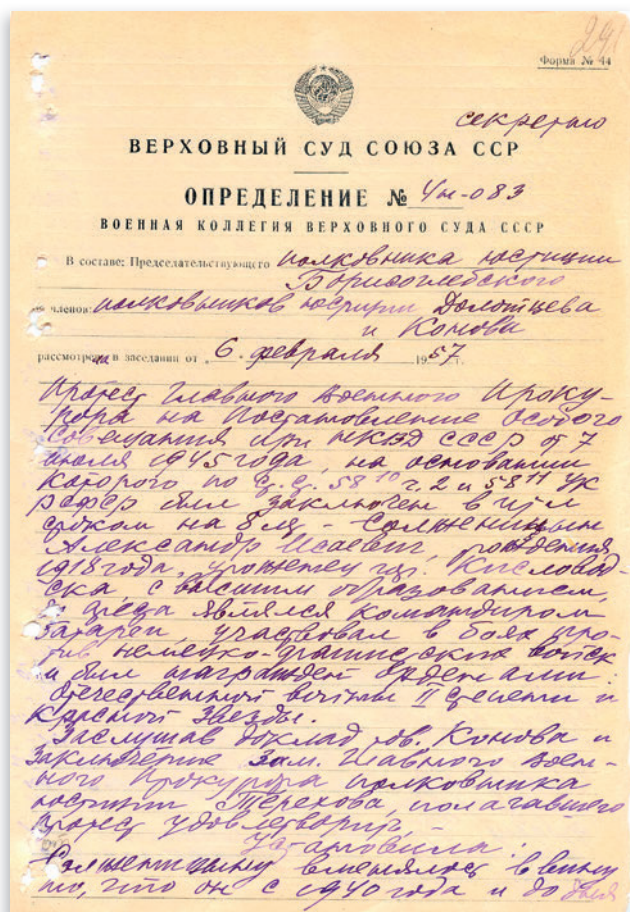 241
Форма № 44
секретно
ВЕРХОВНЫЙ СУД СОЮЗА ССР
ОПРЕДЕЛЕНИЕ № 4н-083
ВОЕННАЯ КОЛЛЕГИЯ ВЕРХОВНОГО СУДА СССР
В составе: Председательствующего полковника юстиции
Борисоглебского
и членов: полковников юстиции Долотцева
и Конова
рассмотрела в заседании от „6. февраля 1957 г.
Протест Главного Военного Проку-
рора на Постановление Особого
Совещания при НКВД СССР от 7
июля 1945 года, на основании
которого по ст. ст. 58¹⁰ ч. 2 и 58¹¹ УК
РСФСР был заключен в ИТЛ
сроком на 8 лет - Солженицын
Александр Исаевич, рождения
1918 года, уроженец гор. Кисловод-
ска, с высшим образованием,
до ареста являлся командиром
батареи, участвовал в боях про-
тив немецко-фашистских войск
и был награжден орденами:
Отечественной войны II степени и
Красной Звезды.
Заслушав доклад тов. Конова и
заключение зам. Главного Воен-
ного Прокурора полковника
юстиции Терехова, полагавшего
протест удовлетворить,
Установила:
Солженицыну вменялось в вину
то, что он с 1940 года и до дня